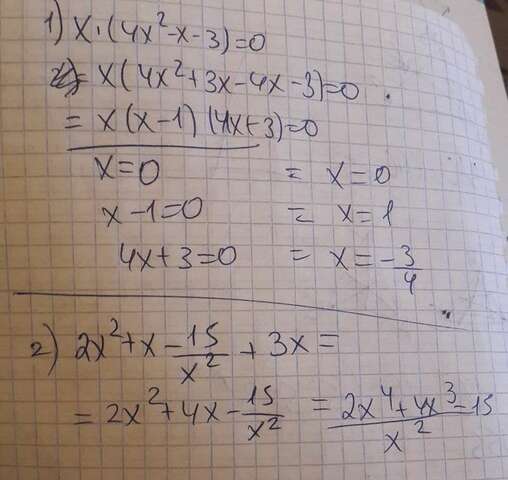 1) x·(4x²-x-3)=0
= x(4x²+3x-4x-3)=0
= x(x-1)(4x+3)=0
x=0 = x=0
x-1=0 = x=1
4x+3=0 = x=-3/4
2) 2x²+x-15/x²+3x=
= 2x²+4x-15/x² = (2x⁴+4x³-15)/x²